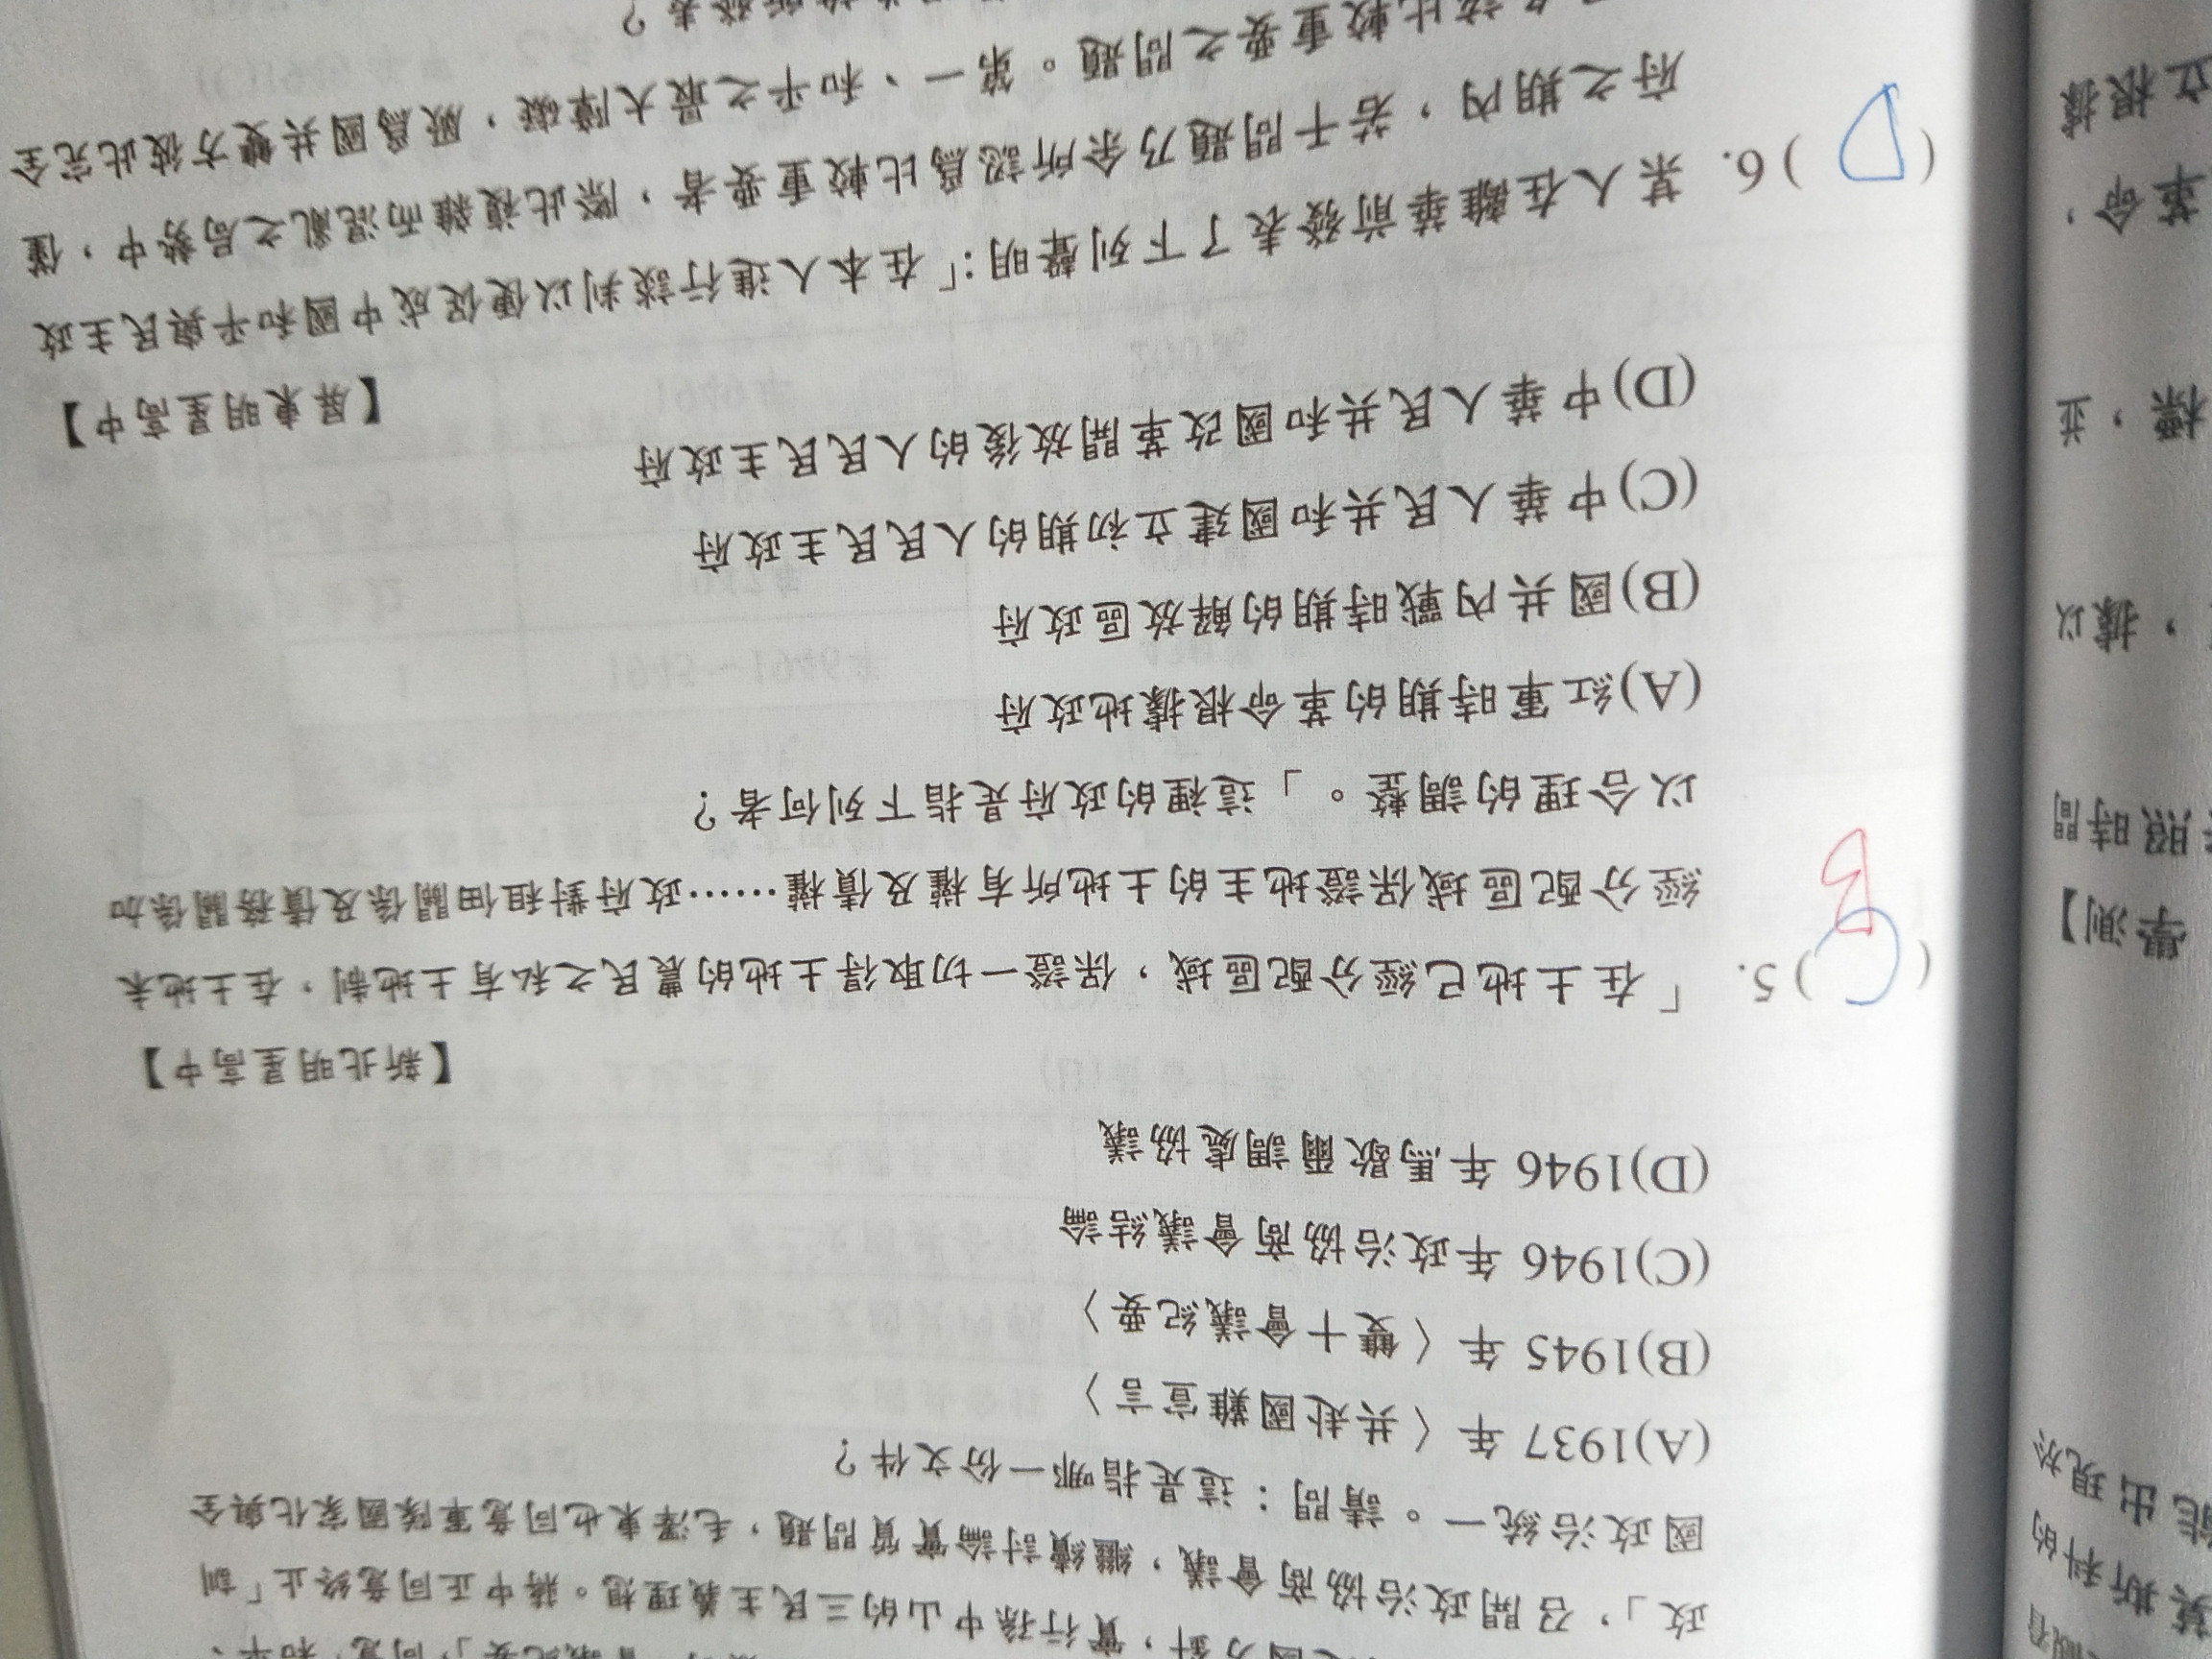 政」，召開政治協商會議，繼續討論實質問題，毛澤東也同意軍隊國家化與全
國政治統一。請問：這是指哪一份文件？
(A)1937 年〈共赴國難宣言〉
(B)1945 年〈雙十會議紀要〉
(C)1946 年政治協商會議結論
(D)1946 年馬歇爾調處協議
【新北明星高中】
( C B ) 5. 「在土地已經分配區域，保證一切取得土地的農民之私有土地制，在土地未
經分配區域保證地主的土地所有權及債權……政府對租佃關係及債務關係加
以合理的調整。」這裡的政府是指下列何者？
(A)紅軍時期的革命根據地政府
(B)國共內戰時期的解放區政府
(C)中華人民共和國建立初期的人民民主政府
(D)中華人民共和國改革開放後的人民民主政府
【屏東明星高中】
( D ) 6. 某人在離華前發表了下列聲明：「在本人進行談判以便促成中國和平與民主政
府之期內，若干問題乃余所認為比較重要者，際此複雜而混亂之局勢中，僅
比較重要之問題。第一、和平之最大障礙，厥為國共雙方彼此完全
立根據
革命，
標，並
，據以
照時間
學測】
能出現於
莫斯科的